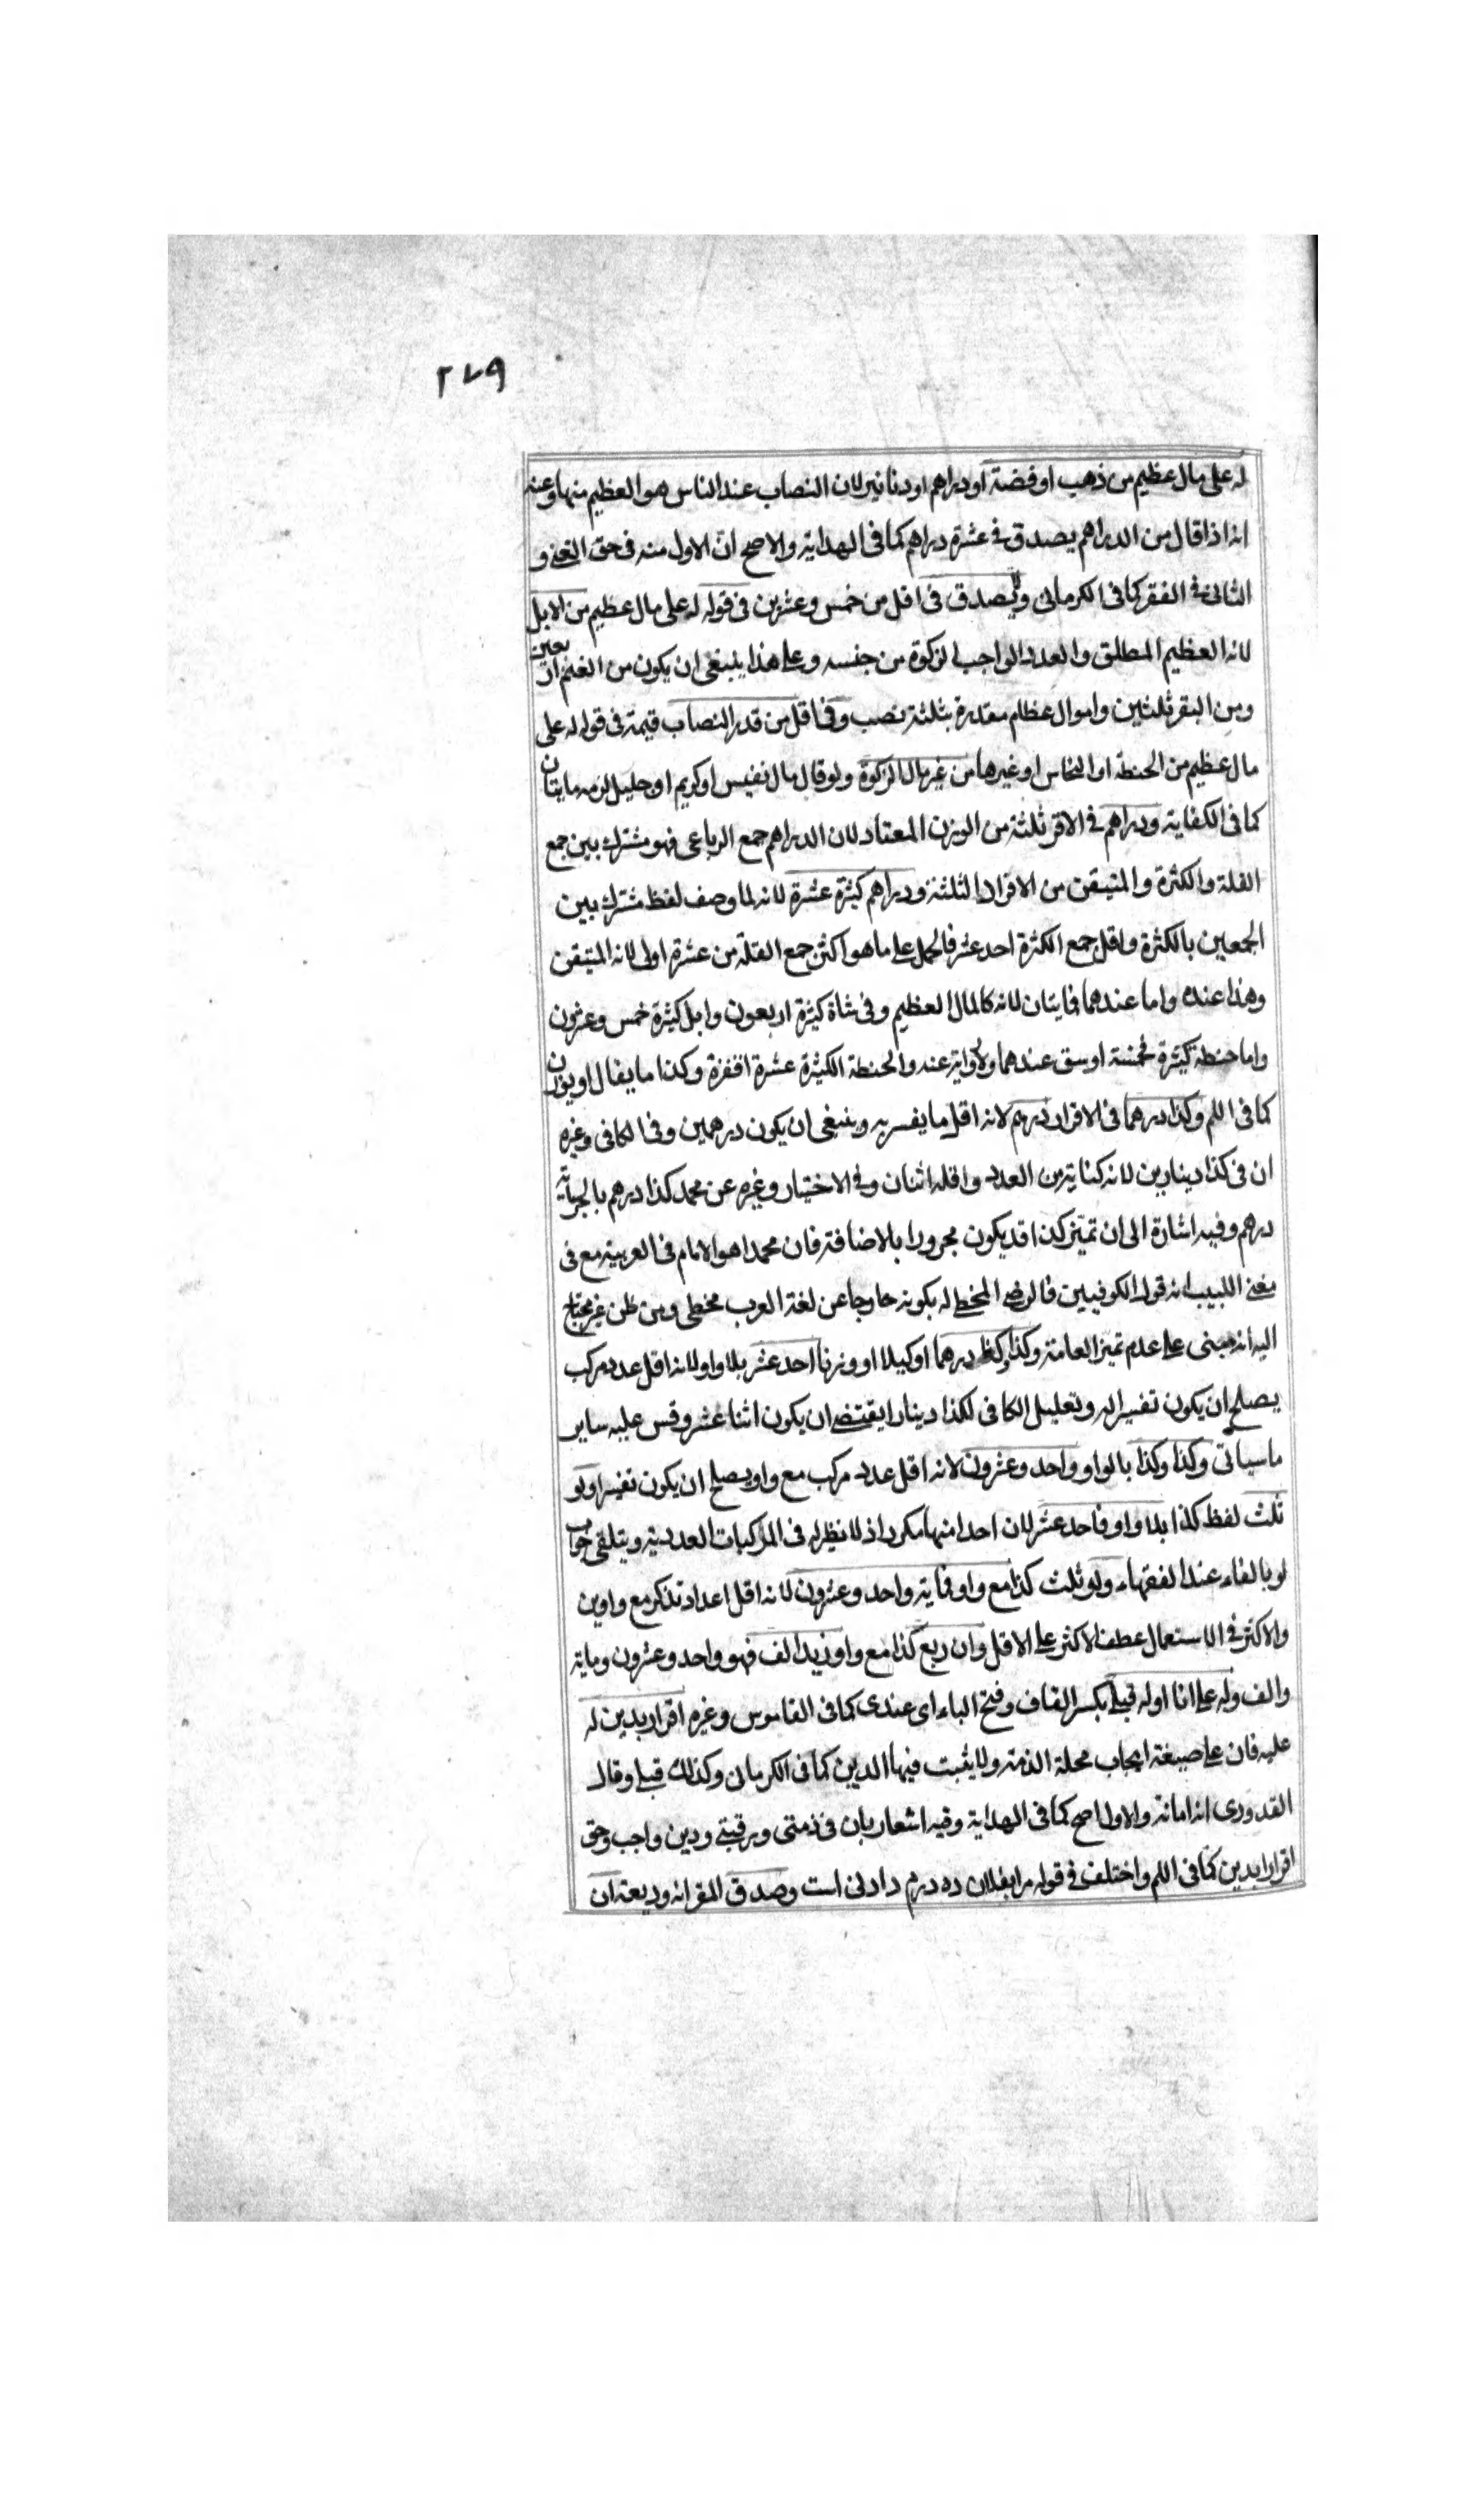 ٢٧٩
له على مال عظيم من ذهب او فضة او دراهم او دنانير لان النصاب عند الناس هو العظيم منها وعنه
انه اذا قال من الدراهم يصدق في عشرة دراهم كما في الهداية والاصح ان الاول منه في حق الغني و
الثاني في الفقر كما في الكرماني ولا يصدق في اقل من خمس وعشرين في قوله له على مال عظيم من الابل
لانه العظيم المطلق والعدد الواجب الزكوة من جنسه وعلى هذا ينبغي ان يكون من الغنم اربعين
ومن البقر ثلثين واموال عظام مقدرة بثلثة نصب وفي اقل من قدر النصاب قيمة في قوله له على
مال عظيم من الحنطة او النحاس او غيرها من غير مال الزكوة ولو قال مال نفيس او كريم او جليل لزمه مايتان
كما في الكفاية ودراهم في الاقر ثلثة من الوزن المعتاد لان الدراهم جمع الرباعي فهو مشترك بين جمع
القلة والكثرة والمتيقن من الافراد الثلثة ودراهم كثيرة عشرة لانه لما وصف لفظ مشترك بين
الجمعين بالكثرة واقل جمع الكثرة احد عشر فالحمل على ما هو اكثر جمع القلة من عشرة اولى لانه المتيقن
وهذا عنده واما عندهما فمايتان لانه كالمال العظيم وفي شاة كثيرة اربعون وابل كثيرة خمس وعشرون
واما حنطة كثيرة فخمسة اوسق عندهما ولا رواية عنه والحنطة الكثيرة عشرة اقفزة وكذا ما يقال او يوزن
كما في اللم وكذا درهما في الاقرار درهم لانه اقل ما يفسر به وينبغي ان يكون درهمين وفي الكافي وغيره
ان في كذا دينارين لانه كناية من العدد واقله اثنان وفي الاختيار وغيره عن محمد كذا درهم بالجر ماية
درهم وفيه اشارة الى ان تميز كذا قد يكون مجرورا بالاضافة فان محمدا هو الامام في العربية مع في
مغني اللبيب انه قول الكوفيين فالرضي المخطي له بكونه خارجا عن لغة العرب مخطي ومن ظن غير محتاج
اليه انه مبني على عدم تميز العامة وكذا كذا درهما او كيلا او وزنا احد عشر بلا واو لانه اقل عدد مركب
يصلح ان يكون تفسيرا له وتعليل الكافي لكذا دينارا يقتضي ان يكون اثنا عشر وقس عليه ساير
ما سياتي وكذا وكذا بالواو واحد وعشرون لانه اقل عدد مركب مع واو يصلح ان يكون تفسيرا ولو
ثلث لفظ كذا بلا واو فاحد عشر لان احدا منها مكرر اذ لا نظير له في المركبات العددية ويتلقى جواب
لو بالفاء عند الفقهاء ولو ثلث كذا مع واو فماية واحد وعشرون لانه اقل اعداد تذكر مع واوين
والاكثر في الاستعمال عطف الاكثر على الاقل وان ربع كذا مع واو زيد الف فهو واحد وعشرون وماية
والف وله على انا اوله قبلي بكسر القاف وفتح الباء اى عندى كما في القاموس وغيره اقرار بدين له
عليه فان على صيغة ايجاب محلة الذمة ولا يثبت فيها الدين كما في الكرماني وكذلك قبلي وقال
القدورى انه امانة والاول اصح كما في الهداية وفيه اشعار بان في ذمتى ورقبتي ودين واجب وحق
اقرارا بدين كما في اللم واختلف في قوله مرا بفلان ده درم دادنى است وصدق المقر انه وديعة ان